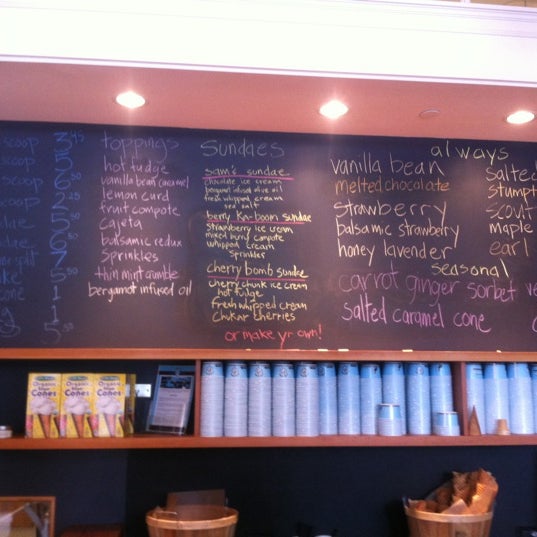 scoop 3.95
scoop 5
scoop 6
scoop 2.25
5.50
6
7
5.50
cone 1
1
5.50
toppings
hot fudge
vanilla bean caramel
lemon curd
fruit compote
cajeta
balsamic redux
sprinkles
thin mint crumble
bergamot infused oil
Sundaes
sam's sundae
chocolate ice cream
bergamot infused olive oil
fresh whipped cream
sea salt
berry ka-boom sundae
strawberry ice cream
mixed berry compote
whipped cream
sprinkles
cherry bomb sundae
cherry chunk ice cream
hot fudge
fresh whipped cream
chukar cherries
or make yr own!
always
vanilla bean
melted chocolate
strawberry
balsamic strawberry
honey lavender
salted
stumpt
scout
maple
earl
seasonal
carrot ginger sorbet ve
salted caramel cone
Organic
Sugar
Cones
Organic
Sugar
Cones
Organic
Sugar
Cones